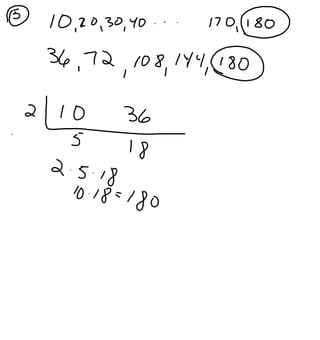 15 10, 20, 30, 40 ... 170, 180
36, 72, 108, 144, 180
2 10 36
5 18
2 · 5 · 18
10 · 18 = 180